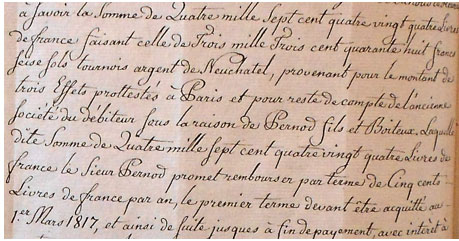 à savoir la Somme de Quatre mille Sept cent quatre vingt quatre Livres
de france faisant celle de Trois mille Trois cent quarante huit francs
seise sols tournois argent de Neuchatel, provenant pour le montant de
trois Effets prottestés à Paris et pour reste de compte de l'ancienne
Société du débiteur sous la raison de Pernod fils et Boiteux. Laquelle
dite Somme de Quatre mille sept cent quatre vingt quatre Livres de
france le Sieur Pernod promet rembourser par terme de Cinq cents
Livres de france par an, le premier terme devant être acquitté au
1er Mars 1817, et ainsi de suite jusques à fin de payement, avec intérêt à